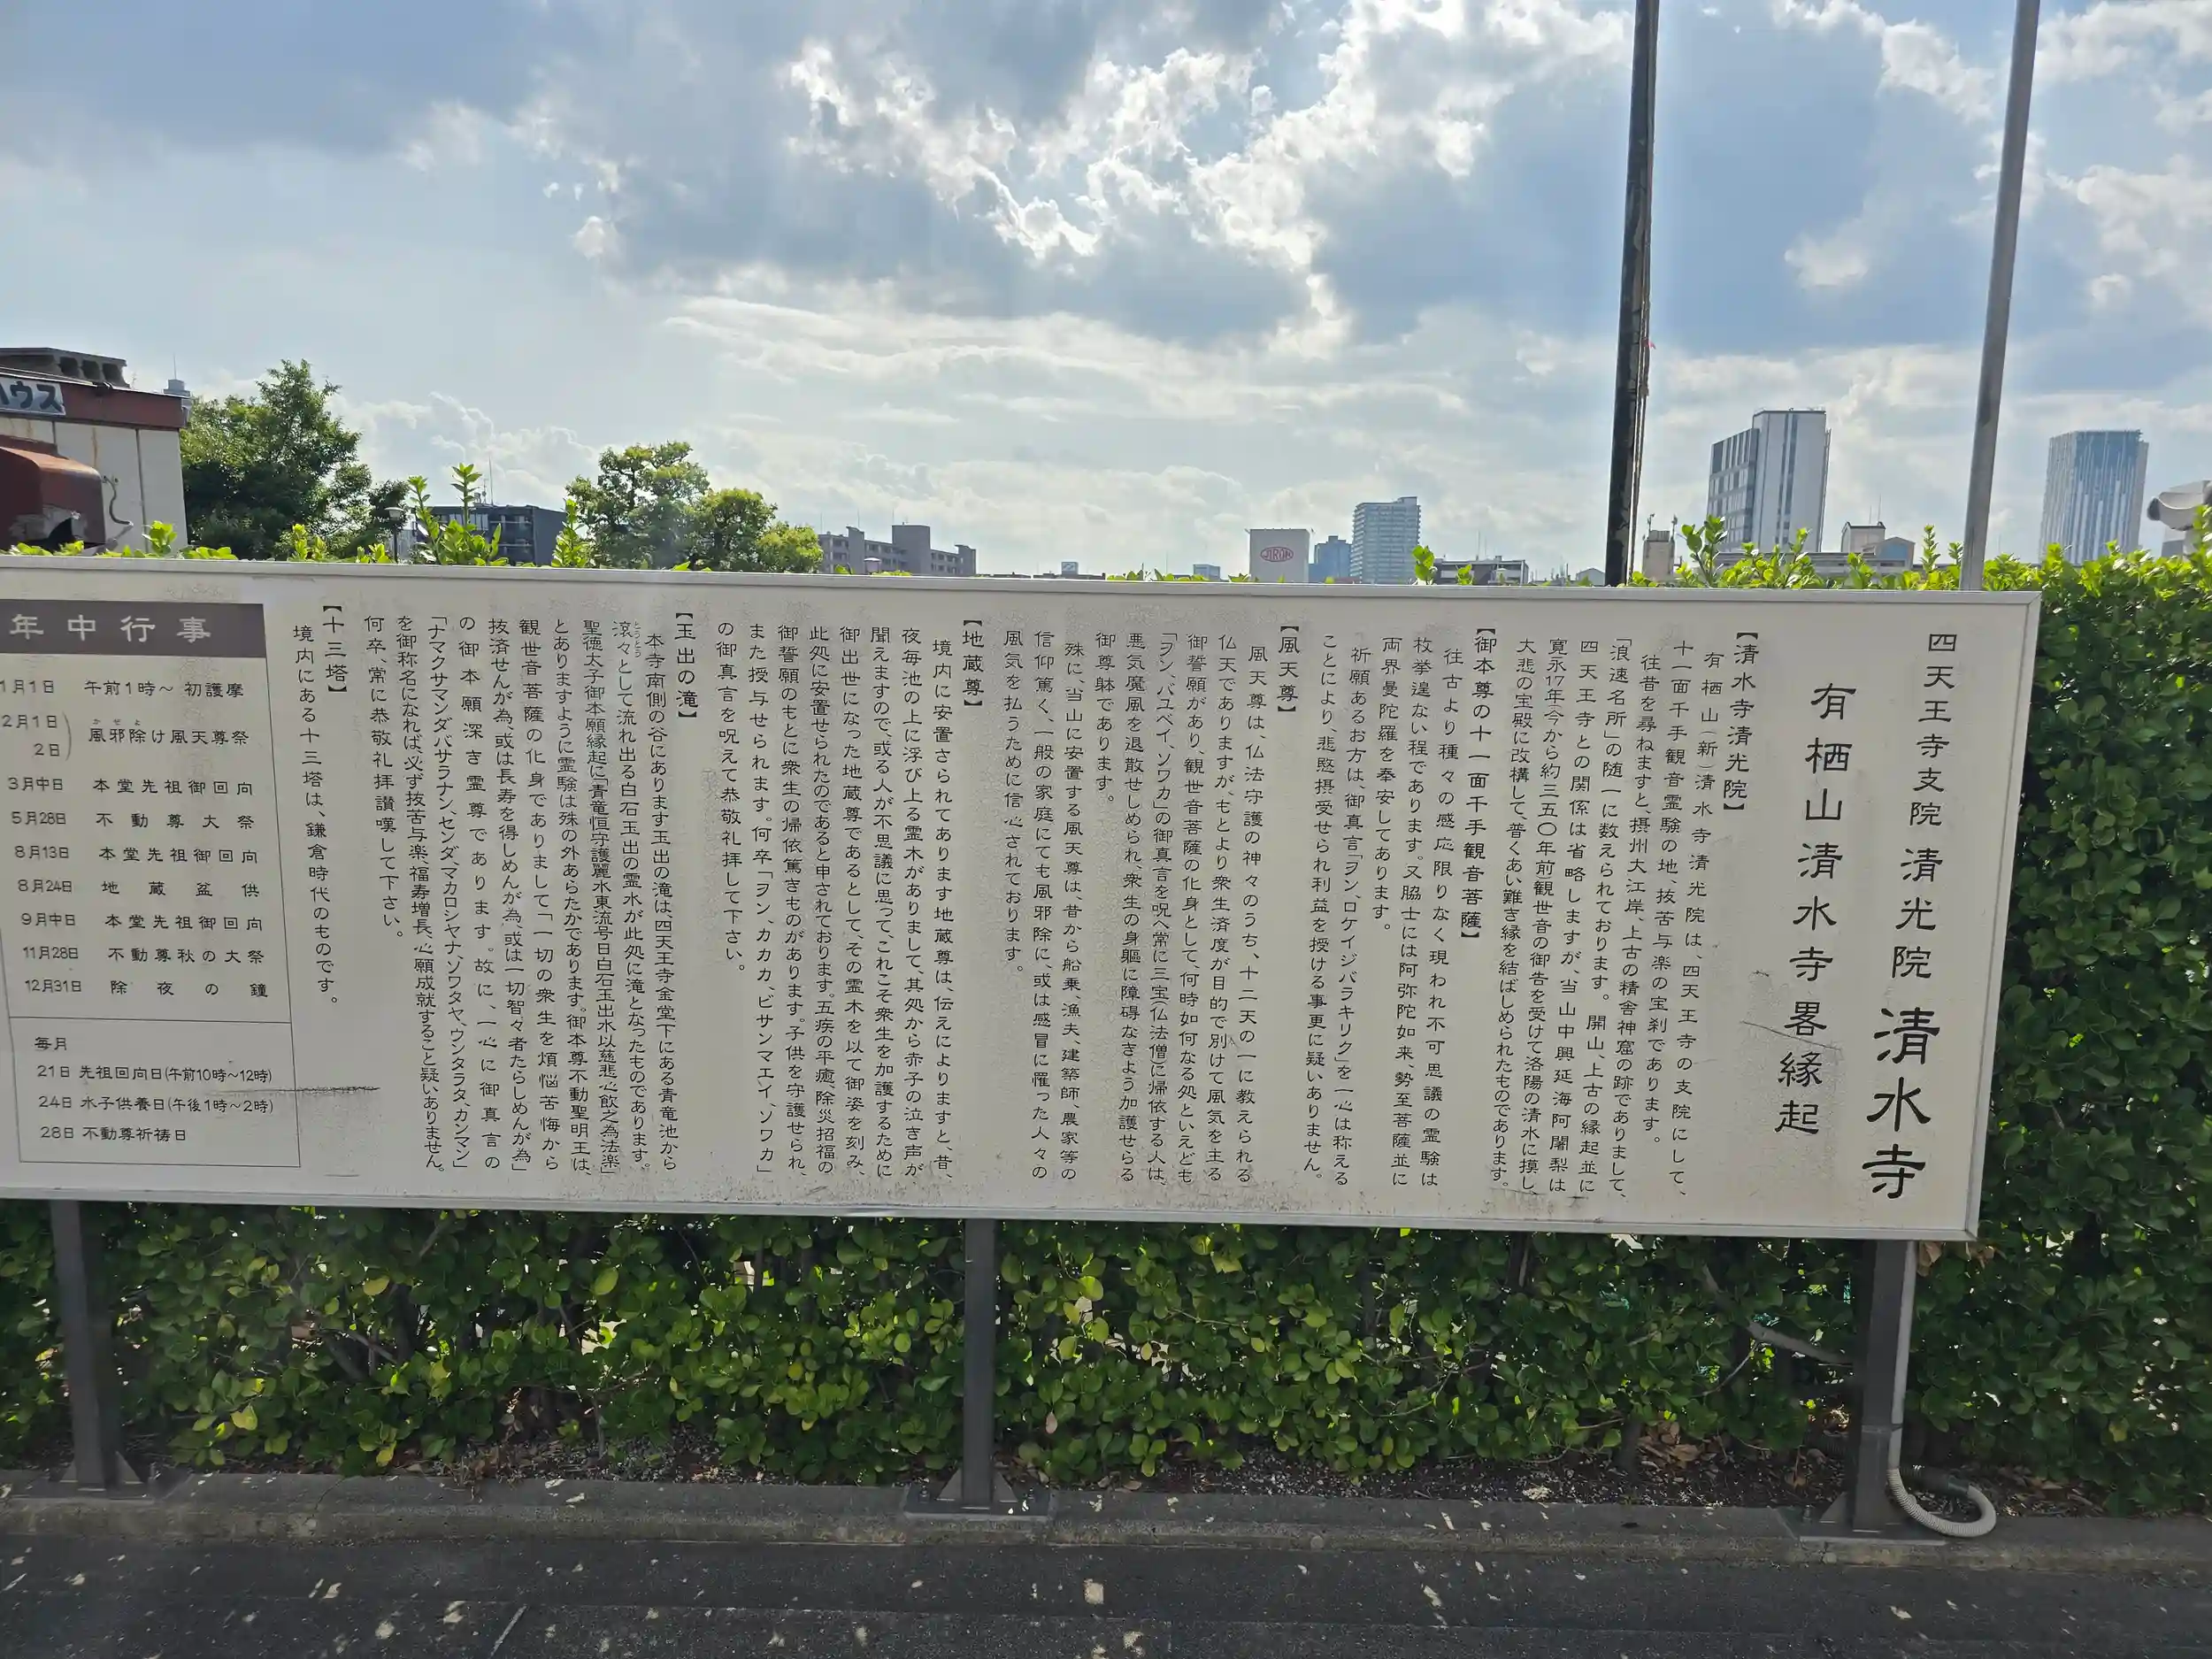 四天王寺支院 清光院 清水寺
有栖山清水寺畧縁起
【清水寺清光院】
有栖山(新)清水寺清光院は、四天王寺の支院にして、
十一面千手観音霊験の地、抜苦与楽の宝刹であります。
往昔を尋ねますと、摂州大江岸、上古の精舎神窟の跡でありまして、
「浪速名所」の随一に数えられております。開山、上古の縁起並に
四天王寺との関係は省略しますが、当山中興延海阿闍梨は
寛永17年(今から約三五〇年前)観世音の御告を受けて洛陽の清水に摸し、
大悲の宝殿に改構して、普くあい難き縁を結ばしめられたものであります。
【御本尊の十一面千手観音菩薩】
往古より種々の感応限りなく現われ不可思議の霊験は
枚挙遑ない程であります。又脇士には阿弥陀如来、勢至菩薩並に
両界曼陀羅を奉安してあります。
祈願あるお方は、御真言「ヲン、ロケイジバラキリク」を一心は称える
ことにより、悲愍摂受せられ利益を授ける事更に疑いありません。
【風天尊】
風天尊は、仏法守護の神々のうち、十二天の一に教えられる
仏天でありますが、もとより衆生済度が目的で別けて風気を主る
御誓願があり、観世音菩薩の化身として、何時如何なる処といえども
「ヲン、バユベイ、ソワカ」の御真言を呪へ常に三宝(仏法僧)に帰依する人は、
悪気魔風を退散せしめられ、衆生の身軀に障碍なきよう加護せらる
御尊躰であります。
殊に、当山に安置する風天尊は、昔から船乗、漁夫、建築師、農家等の
信仰篤く、一般の家庭にても風邪除に、或は感冒に罹った人々の
風気を払うために信心されております。
【地蔵尊】
境内に安置さられてあります地蔵尊は、伝えによりますと、昔、
夜毎池の上に浮び上る霊木がありまして、其処から赤子の泣き声が、
聞えますので、或る人が不思議に思って、これこそ衆生を加護するために
御出世になった地蔵尊であるとして、その霊木を以て御姿を刻み、
此処に安置せられたのであると申されております。五疾の平癒、除災招福の
御誓願のもとに衆生の帰依篤きものがあります。子供を守護せられ、
また授与せられます。何卒「ヲン、カカカ、ビサンマエイ、ソワカ」
の御真言を呪えて恭敬礼拝して下さい。
【玉出の滝】
本寺南側の谷にあります玉出の滝は、四天王寺金堂下にある青竜池から
滾々として流れ出る白石玉出の霊水が此処に滝となったものであります。
とうとう
聖徳太子御本願縁起に「青竜恒守護麗水東流号曰白石玉出水以慈悲心飲之為法楽」
とありますように霊験は殊の外あらたかであります。御本尊不動聖明王は、
観世音菩薩の化身でありまして「一切の衆生を煩悩苦悔から
抜済せんが為、或は長寿を得しめんが為、或は一切智々者たらしめんが為」
の御本願深き霊尊であります。故に、一心に御真言の
「ナマクサマンダバサラナン、センダ、マカロシヤナ、ソワタヤ、ウンタラタ、カンマン」
を御称名になれば、必ず抜苦与楽、福寿増長、心願成就すること疑いありません。
何卒、常に恭敬礼拝讃嘆して下さい。
【十三塔】
境内にある十三塔は、鎌倉時代のものです。
年中行事
1月1日 午前1時~ 初護摩
2月1日
2日
かぜよ
風邪除け風天尊祭
3月中日 本堂先祖御回向
5月28日 不動尊大祭
8月13日 本堂先祖御回向
8月24日 地蔵盆供
9月中日 本堂先祖御回向
11月28日 不動尊秋の大祭
12月31日 除夜の鐘
毎月
21日 先祖回向日(午前10時~12時)
24日 水子供養日(午後1時~2時)
28日 不動尊祈祷日
ハウス